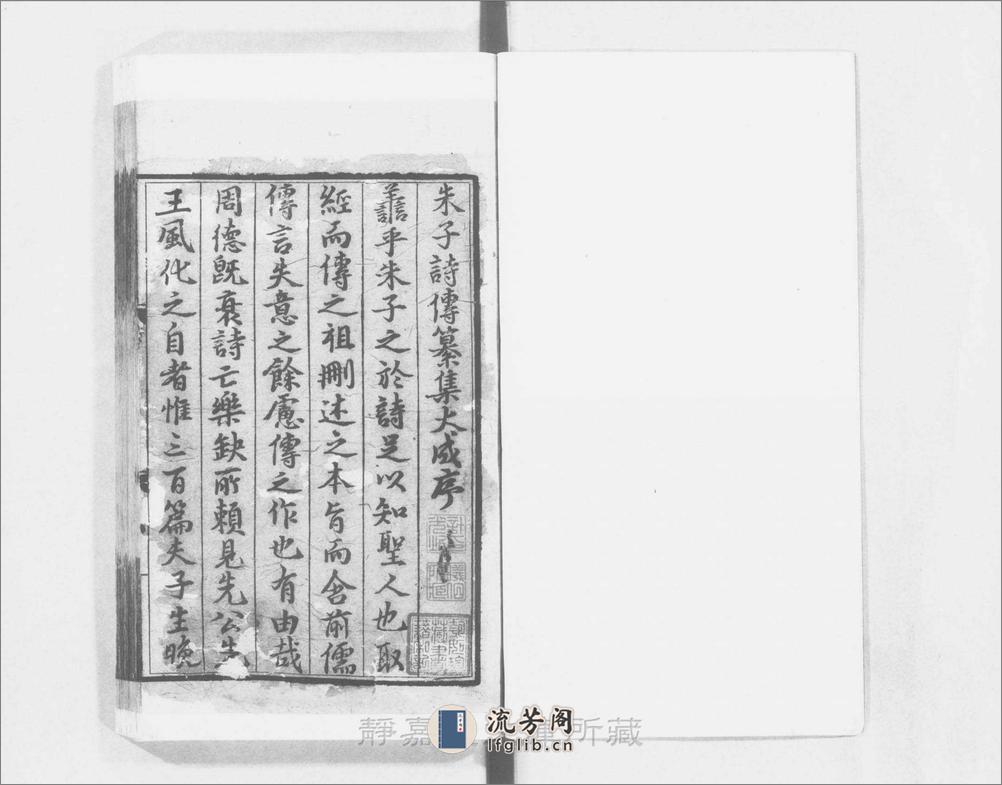 朱子詩傳纂集大成序
譱乎朱子之於詩足以知聖人也取
經而傳之祖刪述之本旨而舍前儒
傳言失意之餘慮傳之作也有由哉
周德旣衰詩亡樂缺所賴見先公先
王風化之自者惟三百篇夫子生晚
靜嘉 所藏
流芳阁
lfglib.cn